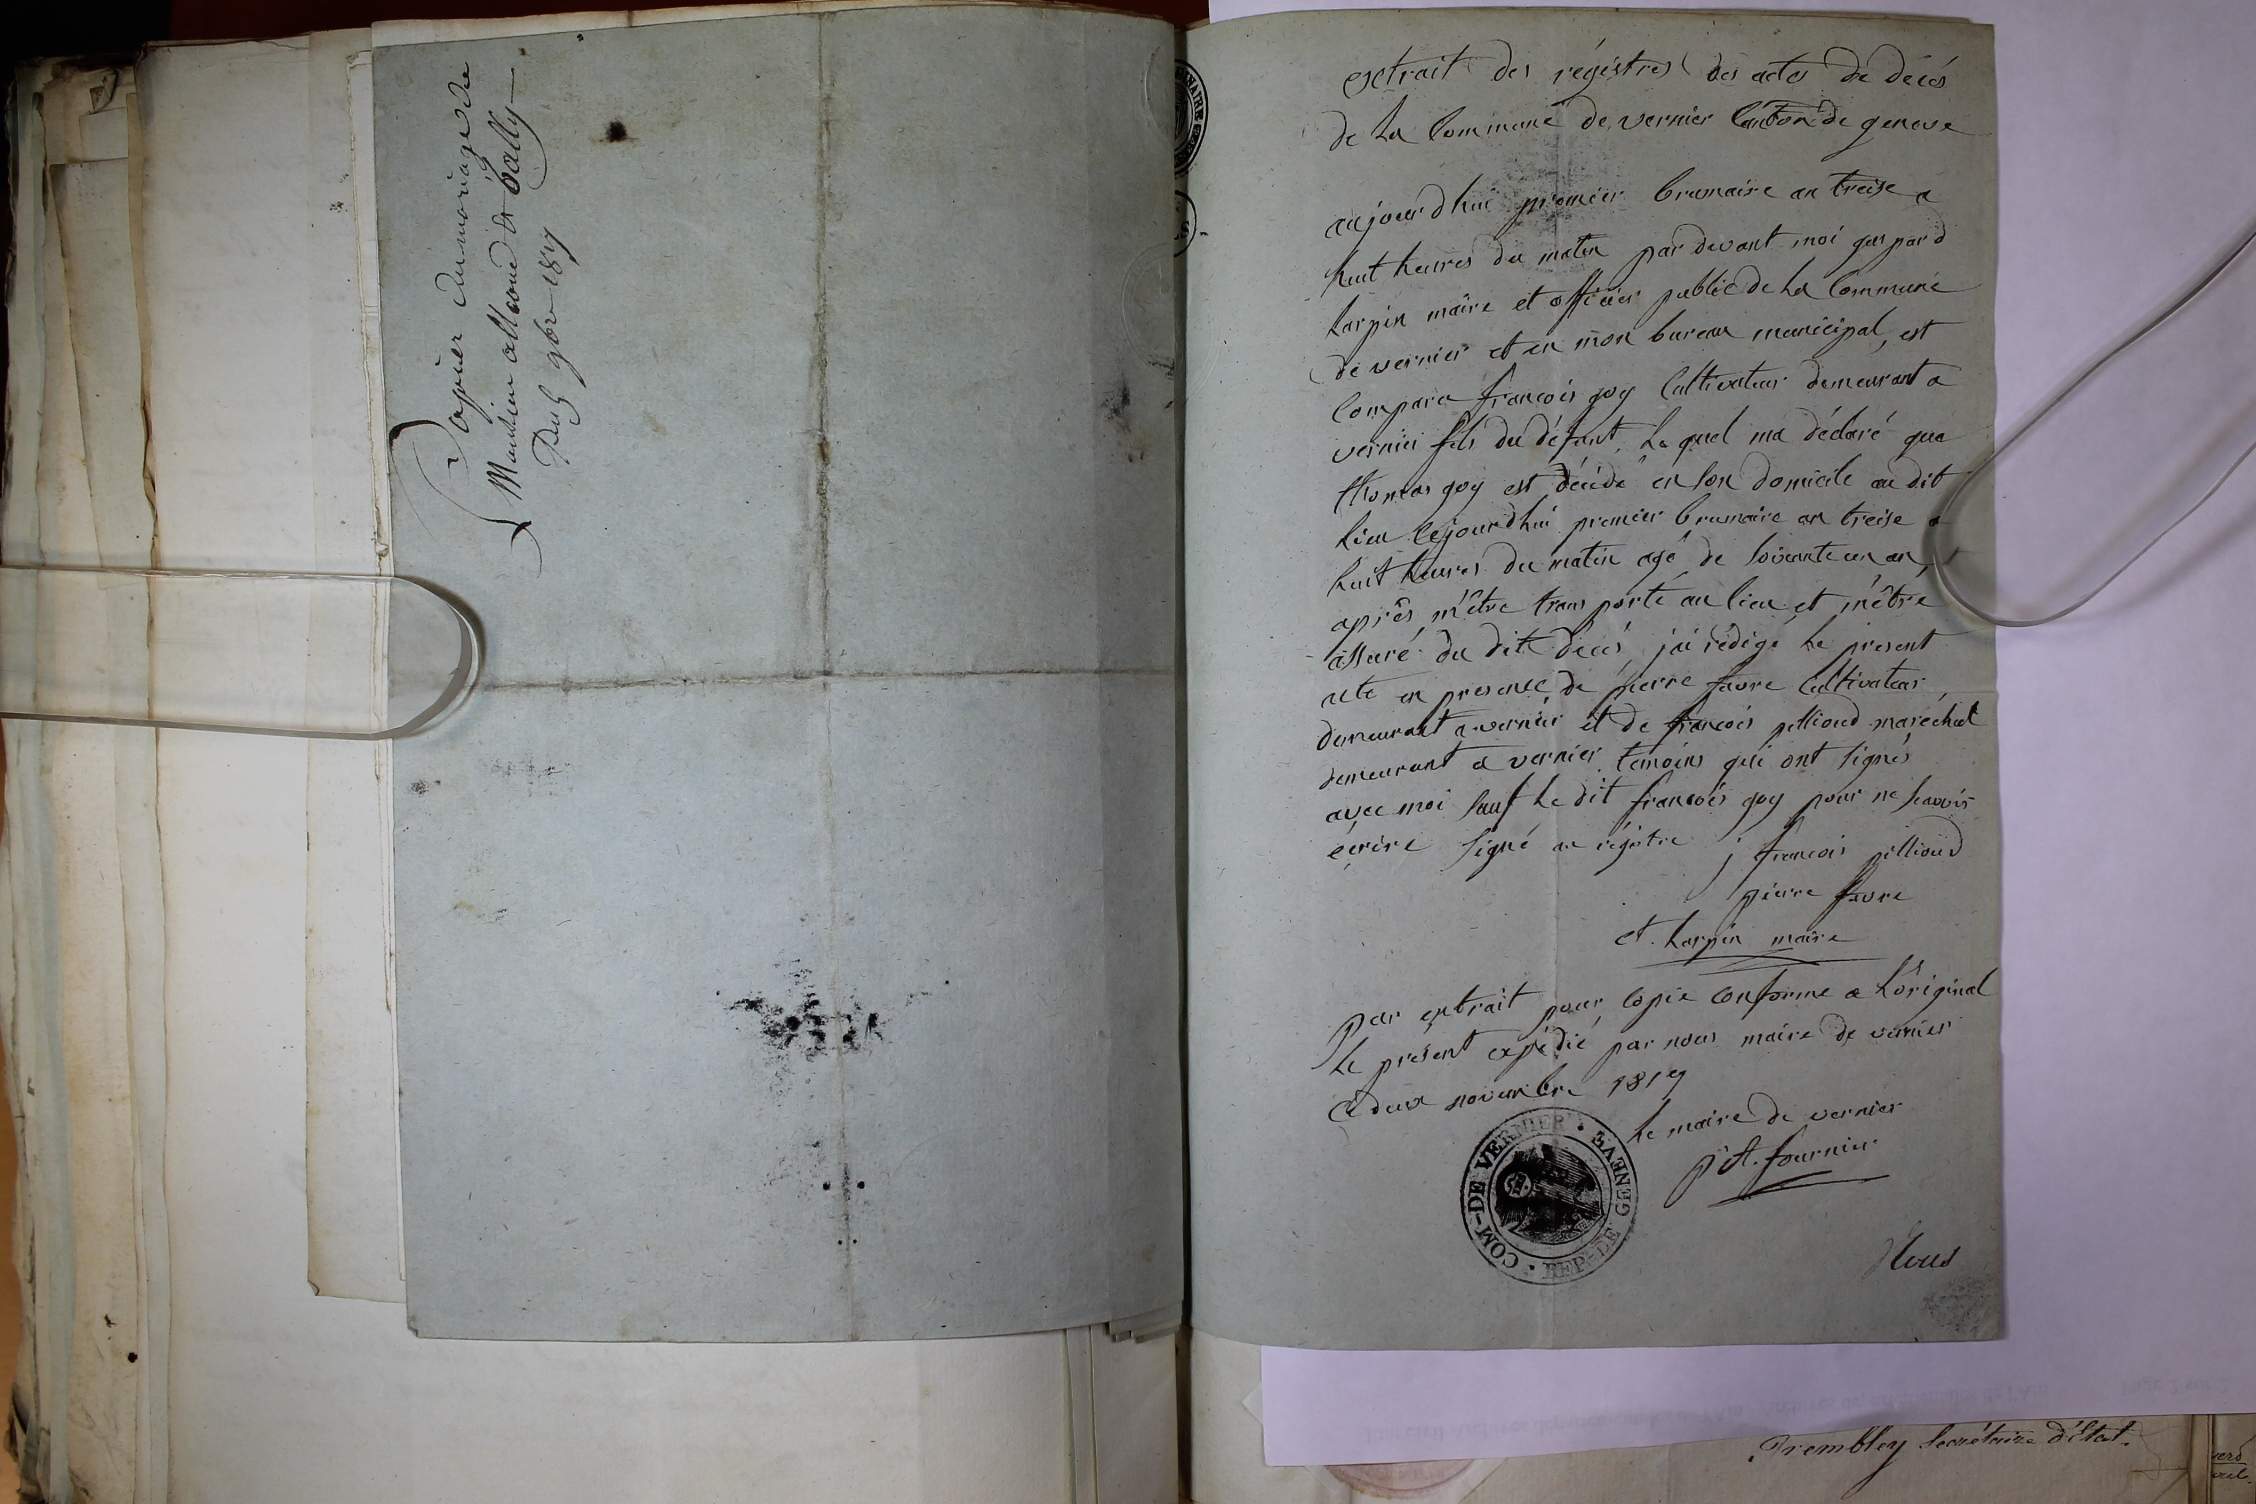 Papier du mariage de
Monsieur allaoud & bally
Du 5 9bre 1817
extrait des régistres des actes de décés
de La Commune de vernier Canton de geneve
aujourd hui premier brumaire an treise a
huit heures du matin par devant moi gaspard
Larpin maire et officier public de La Commune
de vernier et en mon bureau municipal, est
Comparu françois goy Cultivateur demeurant a
vernier fils du défunt, Le quel ma déclaré que
thomas goy est décédé en son domicile au dit
Lieu Cejourdhui premier brumaire an treise a
huit heures du matin agé de soixante un an,
après m'être transporté au lieu et m'être
assuré du dit décés, j'ai rédigé Le present
acte en presence de pierre favre Cultivateur
demeurant a vernier et de françois pillioud maréchal
demeurant a vernier temoins qui ont signés
avec moi sauf Le dit françois goy pour ne scavoir
écrire signé au régistre j françois pillioud
pierre favre
et Larpin maire
par extrait pour copie conforme a L'original
Le présent expédié par nous maire de vernier
Ce deux novembre 1817
Le maire de vernier
p A. fournier
COM-DE VERNIER • REP-DE GENEVE •
Trembley Secrétaire d'état.